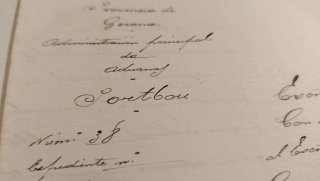 Provincia de
Gerona
Administración principal
de
Aduanas
Portbou
Núm.º 38
Expediente n.º
Con
al Exc